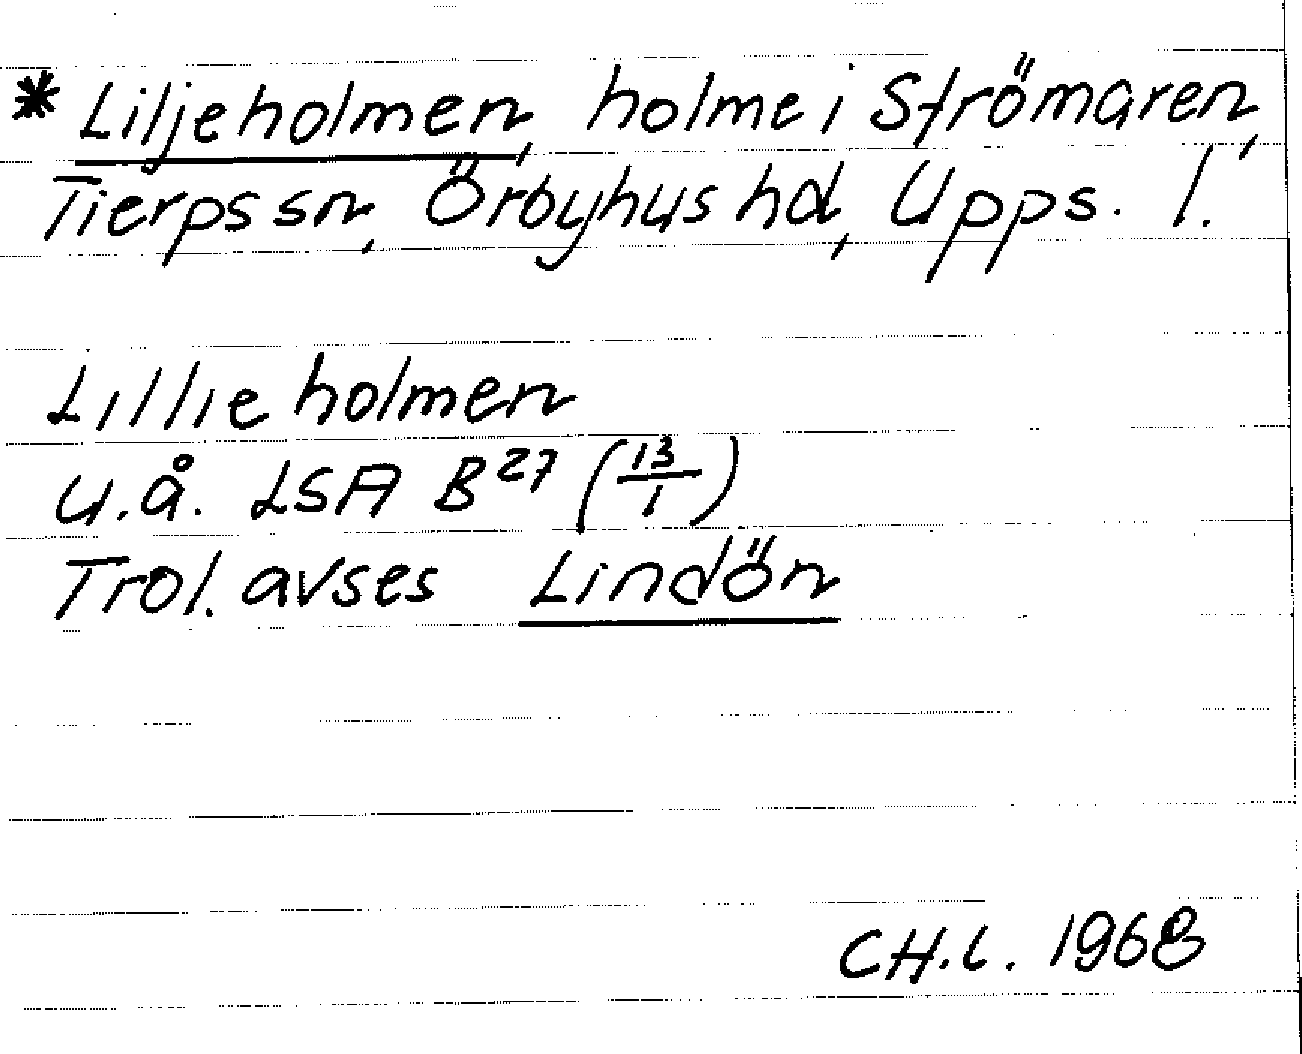 * Liljeholmen, holme i Strömaren,
Tierps sn, Örbyhus hd, Upps. l.
Lillie holmen
u.å. LSA B 27 (13/1)
Trol. avses Lindön
CH.L. 1968